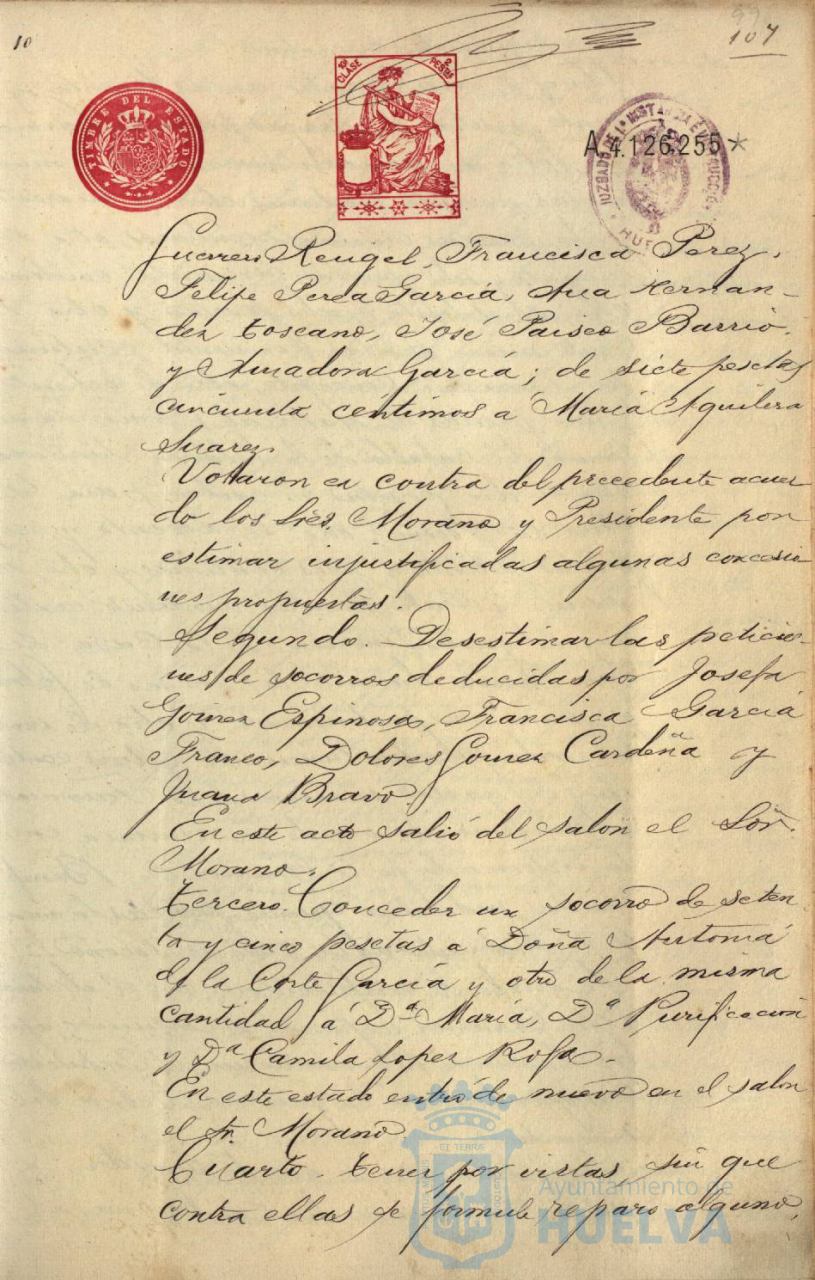 10
99
107
TIMBRE DEL ESTADO
10ª CLASE
2 PESETAS
A.4.126.255*
JUZGADO DE 1ª INSTANCIA É INSTRUCCIÓN
HUELVA
Guerrero Rengel, Francisca Perez,
Felipe Perea García, Ana Hernan-
dez Toscano, José Paisco Barrio,
y Amadora García; de siete pesetas
cincuenta céntimos á María Aguilera
Suarez.
Votaron en contra del precedente acuer-
do los Sres. Morano y Presidente por
estimar injustificadas algunas concesio-
nes propuestas.
Segundo. Desestimar las peticio-
nes de socorros deducidas por Josefa
Gómez Espinosa, Francisca García
Franco, Dolores Gomez Cardeña y
Juana Bravo.
En este acto salió del salon el Sor.
Morano.
Tercero. Conceder un socorro de seten
ta y cinco pesetas á Doña Antonia
de la Corte García y otro de la misma
cantidad á Dª María, Dª Purificacion
y Dª Camila Lopez Rofa.
En este estado entro de nuevo en el salon
el Sr. Morano
Cuarto. Tener por vistas sin que
contra ellas se formule reparo alguno,
Ayuntamiento de
HUELVA